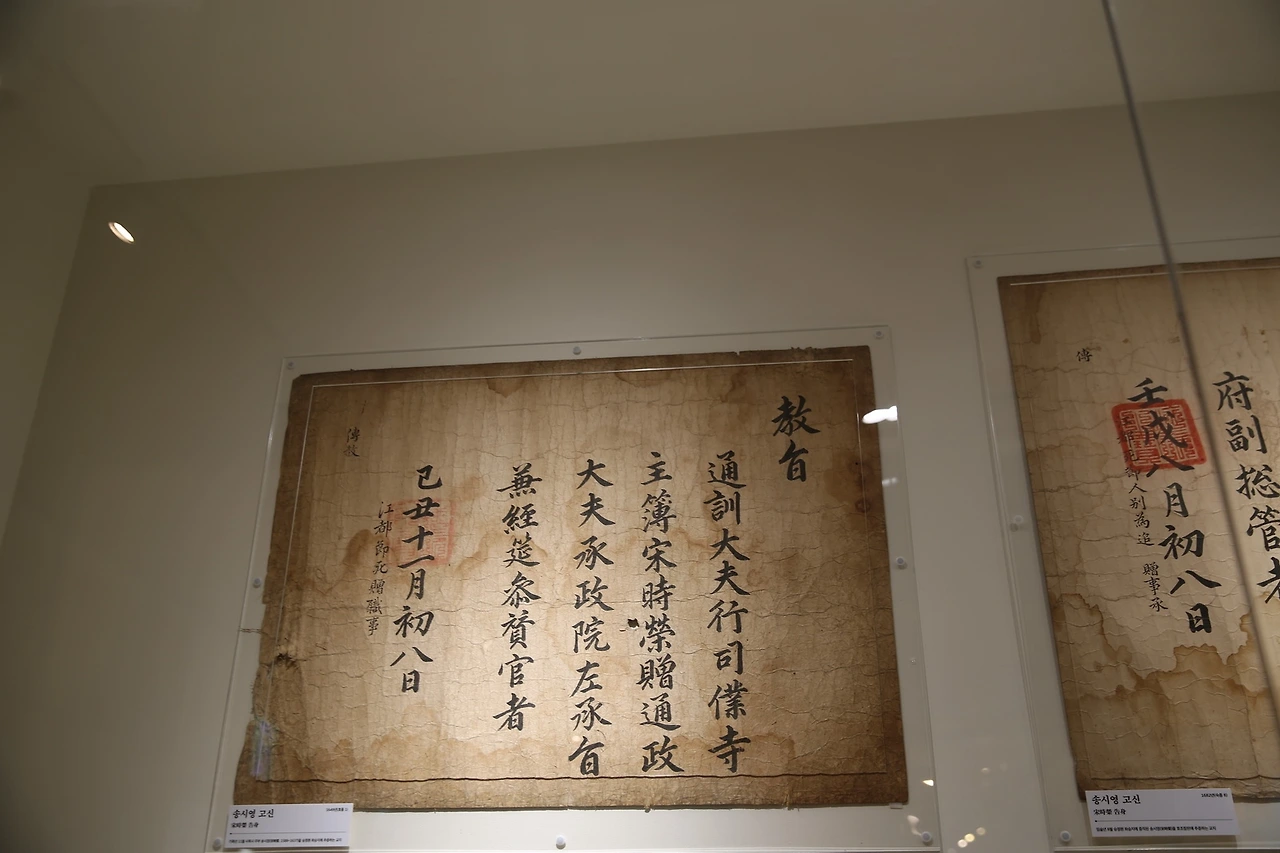 教旨
通訓大夫行司僕寺
主簿宋時榮贈通政
大夫承政院左承旨
兼經筵參贊官者
己丑十一月初八日
江都節死贈職事
傳敎
府副総管者
壬戌八月初八日
人别為追 贈事承
傳
송시영 고신
宋時榮 告身
송시영 고신
宋時榮 告身